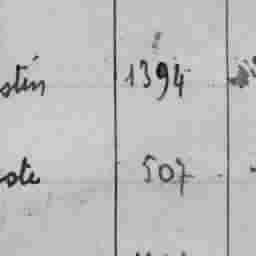 stin 1394
ste 507